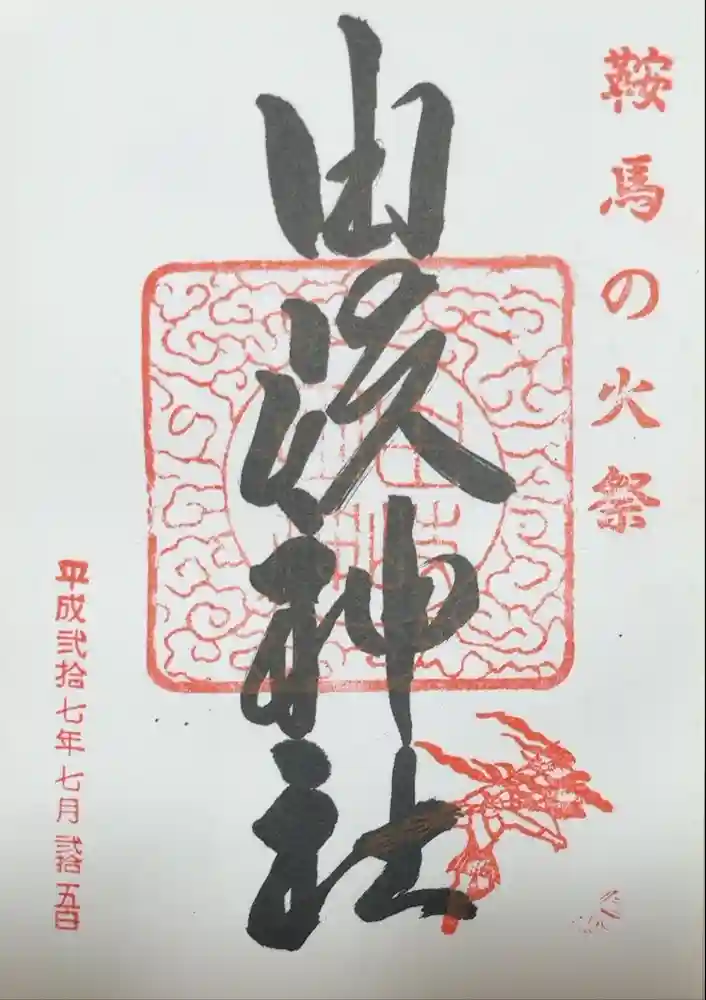 鞍馬の火祭
由岐神社
平成弐拾七年七月弐拾五日